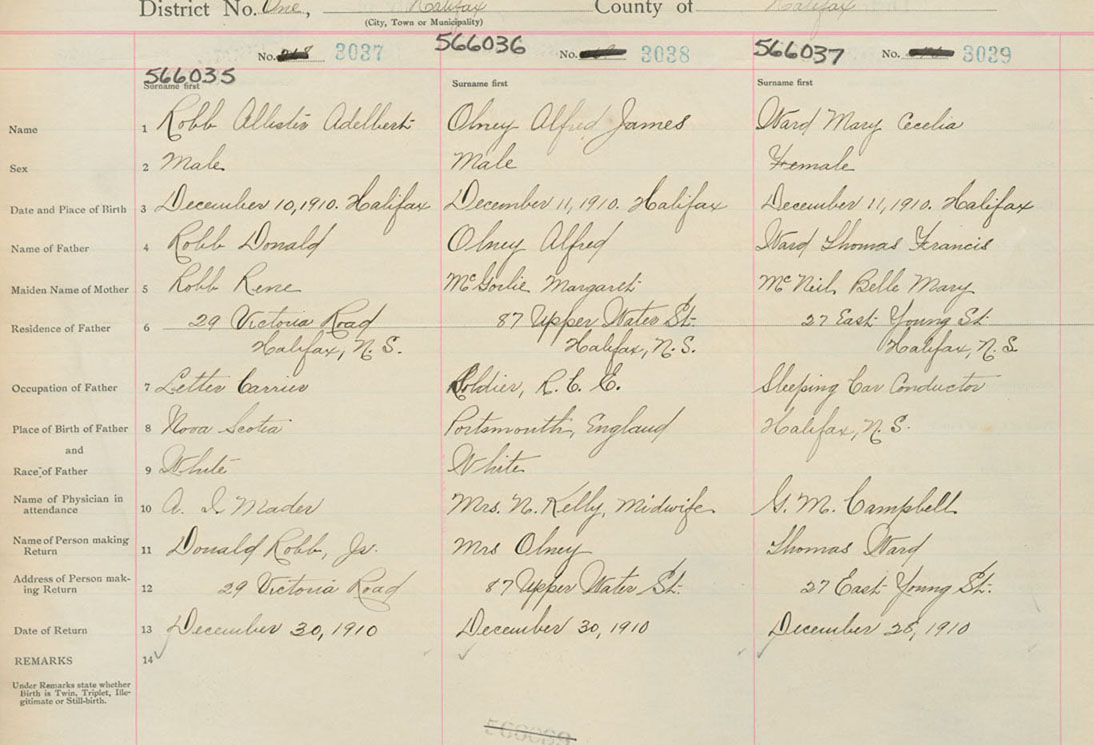 District No. One, Halifax County of Halifax
(City, Town or Municipality)
No. 3037 566036 No. 3038 566037 No. 3039
566035
Surname first Surname first Surname first
Name 1 Robb Allister Adelbert Olney Alfred James Ward Mary Cecelia
Sex 2 Male Male Female
Date and Place of Birth 3 December 10, 1910. Halifax December 11, 1910. Halifax December 11, 1910. Halifax
Name of Father 4 Robb Donald Olney Alfred Ward Thomas Francis
Maiden Name of Mother 5 Robb Rene Margaret McNeil Belle Mary
Residence of Father 6 29 Victoria Road 87 Upper Water St. 27 East Young St
Halifax, N.S. Halifax, N.S. Halifax, N.S.
Occupation of Father 7 Letter Carrier Soldier, R. C. E. Sleeping Car Conductor
Place of Birth of Father 8 Nova Scotia Portsmouth, England Halifax, N.S.
and
Race of Father 9 White White
Name of Physician in
attendance 10 A. I. Mader Mrs. N. Kelly, Midwife G. M. Campbell
Name of Person making
Return 11 Donald Robb, Jr. Mrs Olney Thomas Ward
Address of Person mak-
ing Return 12 29 Victoria Road 87 Upper Water St. 27 East Young St.
Date of Return 13 December 30, 1910 December 30, 1910 December 28, 1910
REMARKS 14
Under Remarks state whether
Birth is Twin, Triplet, Ille-
gitimate or Still-birth.